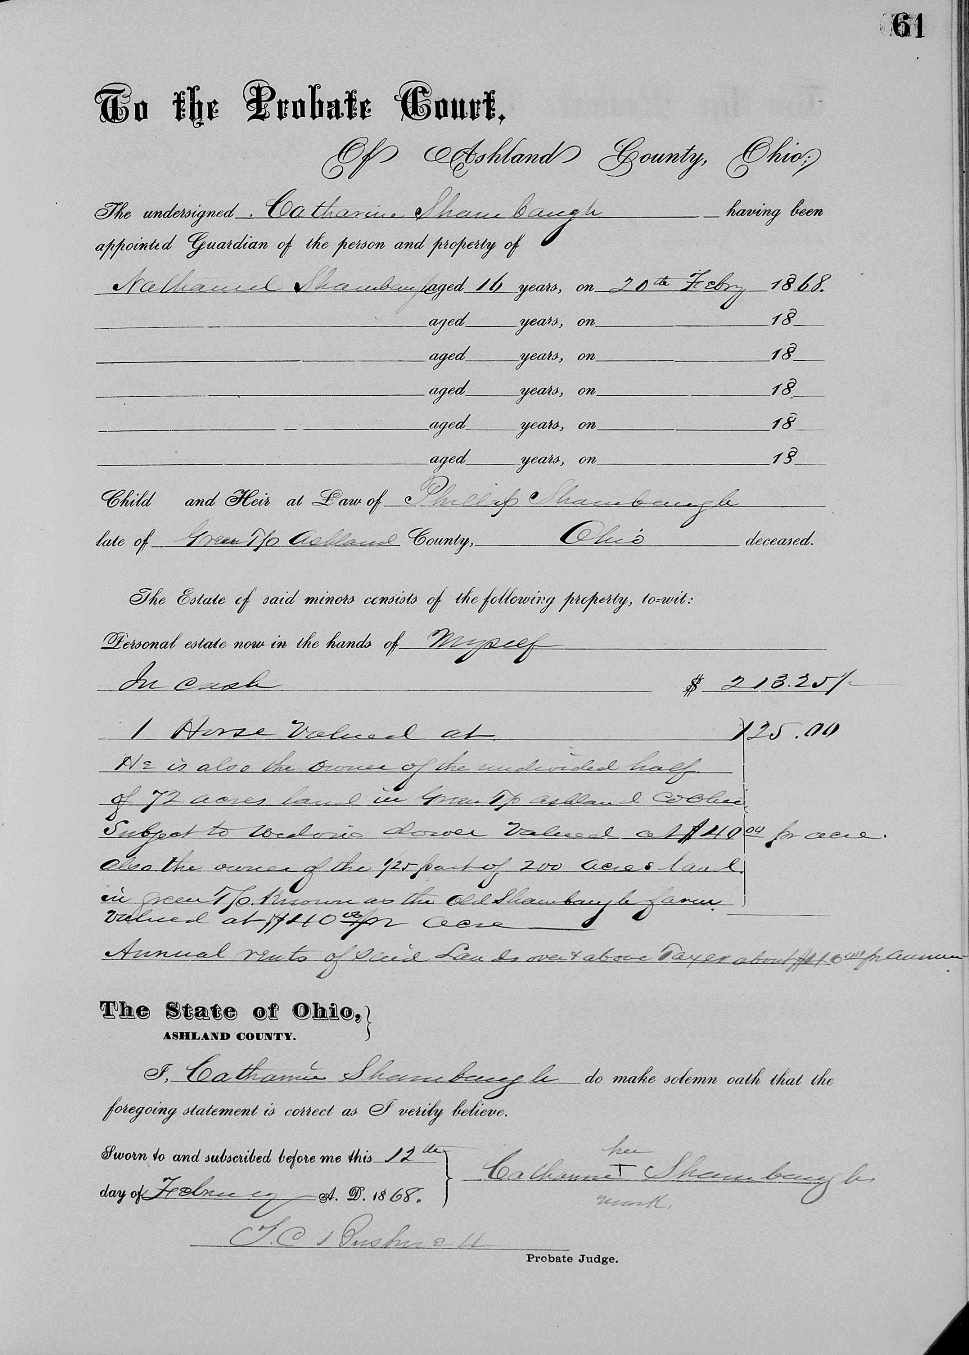 61
To the Probate Court,
Of Ashland County, Ohio:
The undersigned Catharine Shambaugh having been
appointed Guardian of the person and property of
Nathaniel Shambaugh aged 16 years, on 20th Febry 1868.
aged years, on 18
aged years, on 18
aged years, on 18
aged years, on 18
aged years, on 18
Child and Heir at Law of Phillip Shambaugh
late of Green Tp Ashland County, Ohio deceased.
The Estate of said minors consists of the following property, to=wit:
Personal estate now in the hands of Myself
In cash $ 213.25/-
1 Horse Valued at 125.00
He is also the owner of the undivided half
of 72 acres land in Green Tp Ashland Co Ohio
Subject to Widows dower Valued at $40 00 pr acre.
also the owner of the 1/25 part of 200 acres land.
in Green Tp. Known as the old Shambaugh farm
Valued at $40 00 pr acre
Annual rents of said Lands over & above Taxes about pr Annum
The State of Ohio, }
ASHLAND COUNTY.
I, Catharine Shambaugh do make solemn oath that the
foregoing statement is correct as I verily believe.
Sworn to and subscribed before me this 12th
day of February A. D. 1868.
her
Catharine + Shambaugh
mark.
Probate Judge.